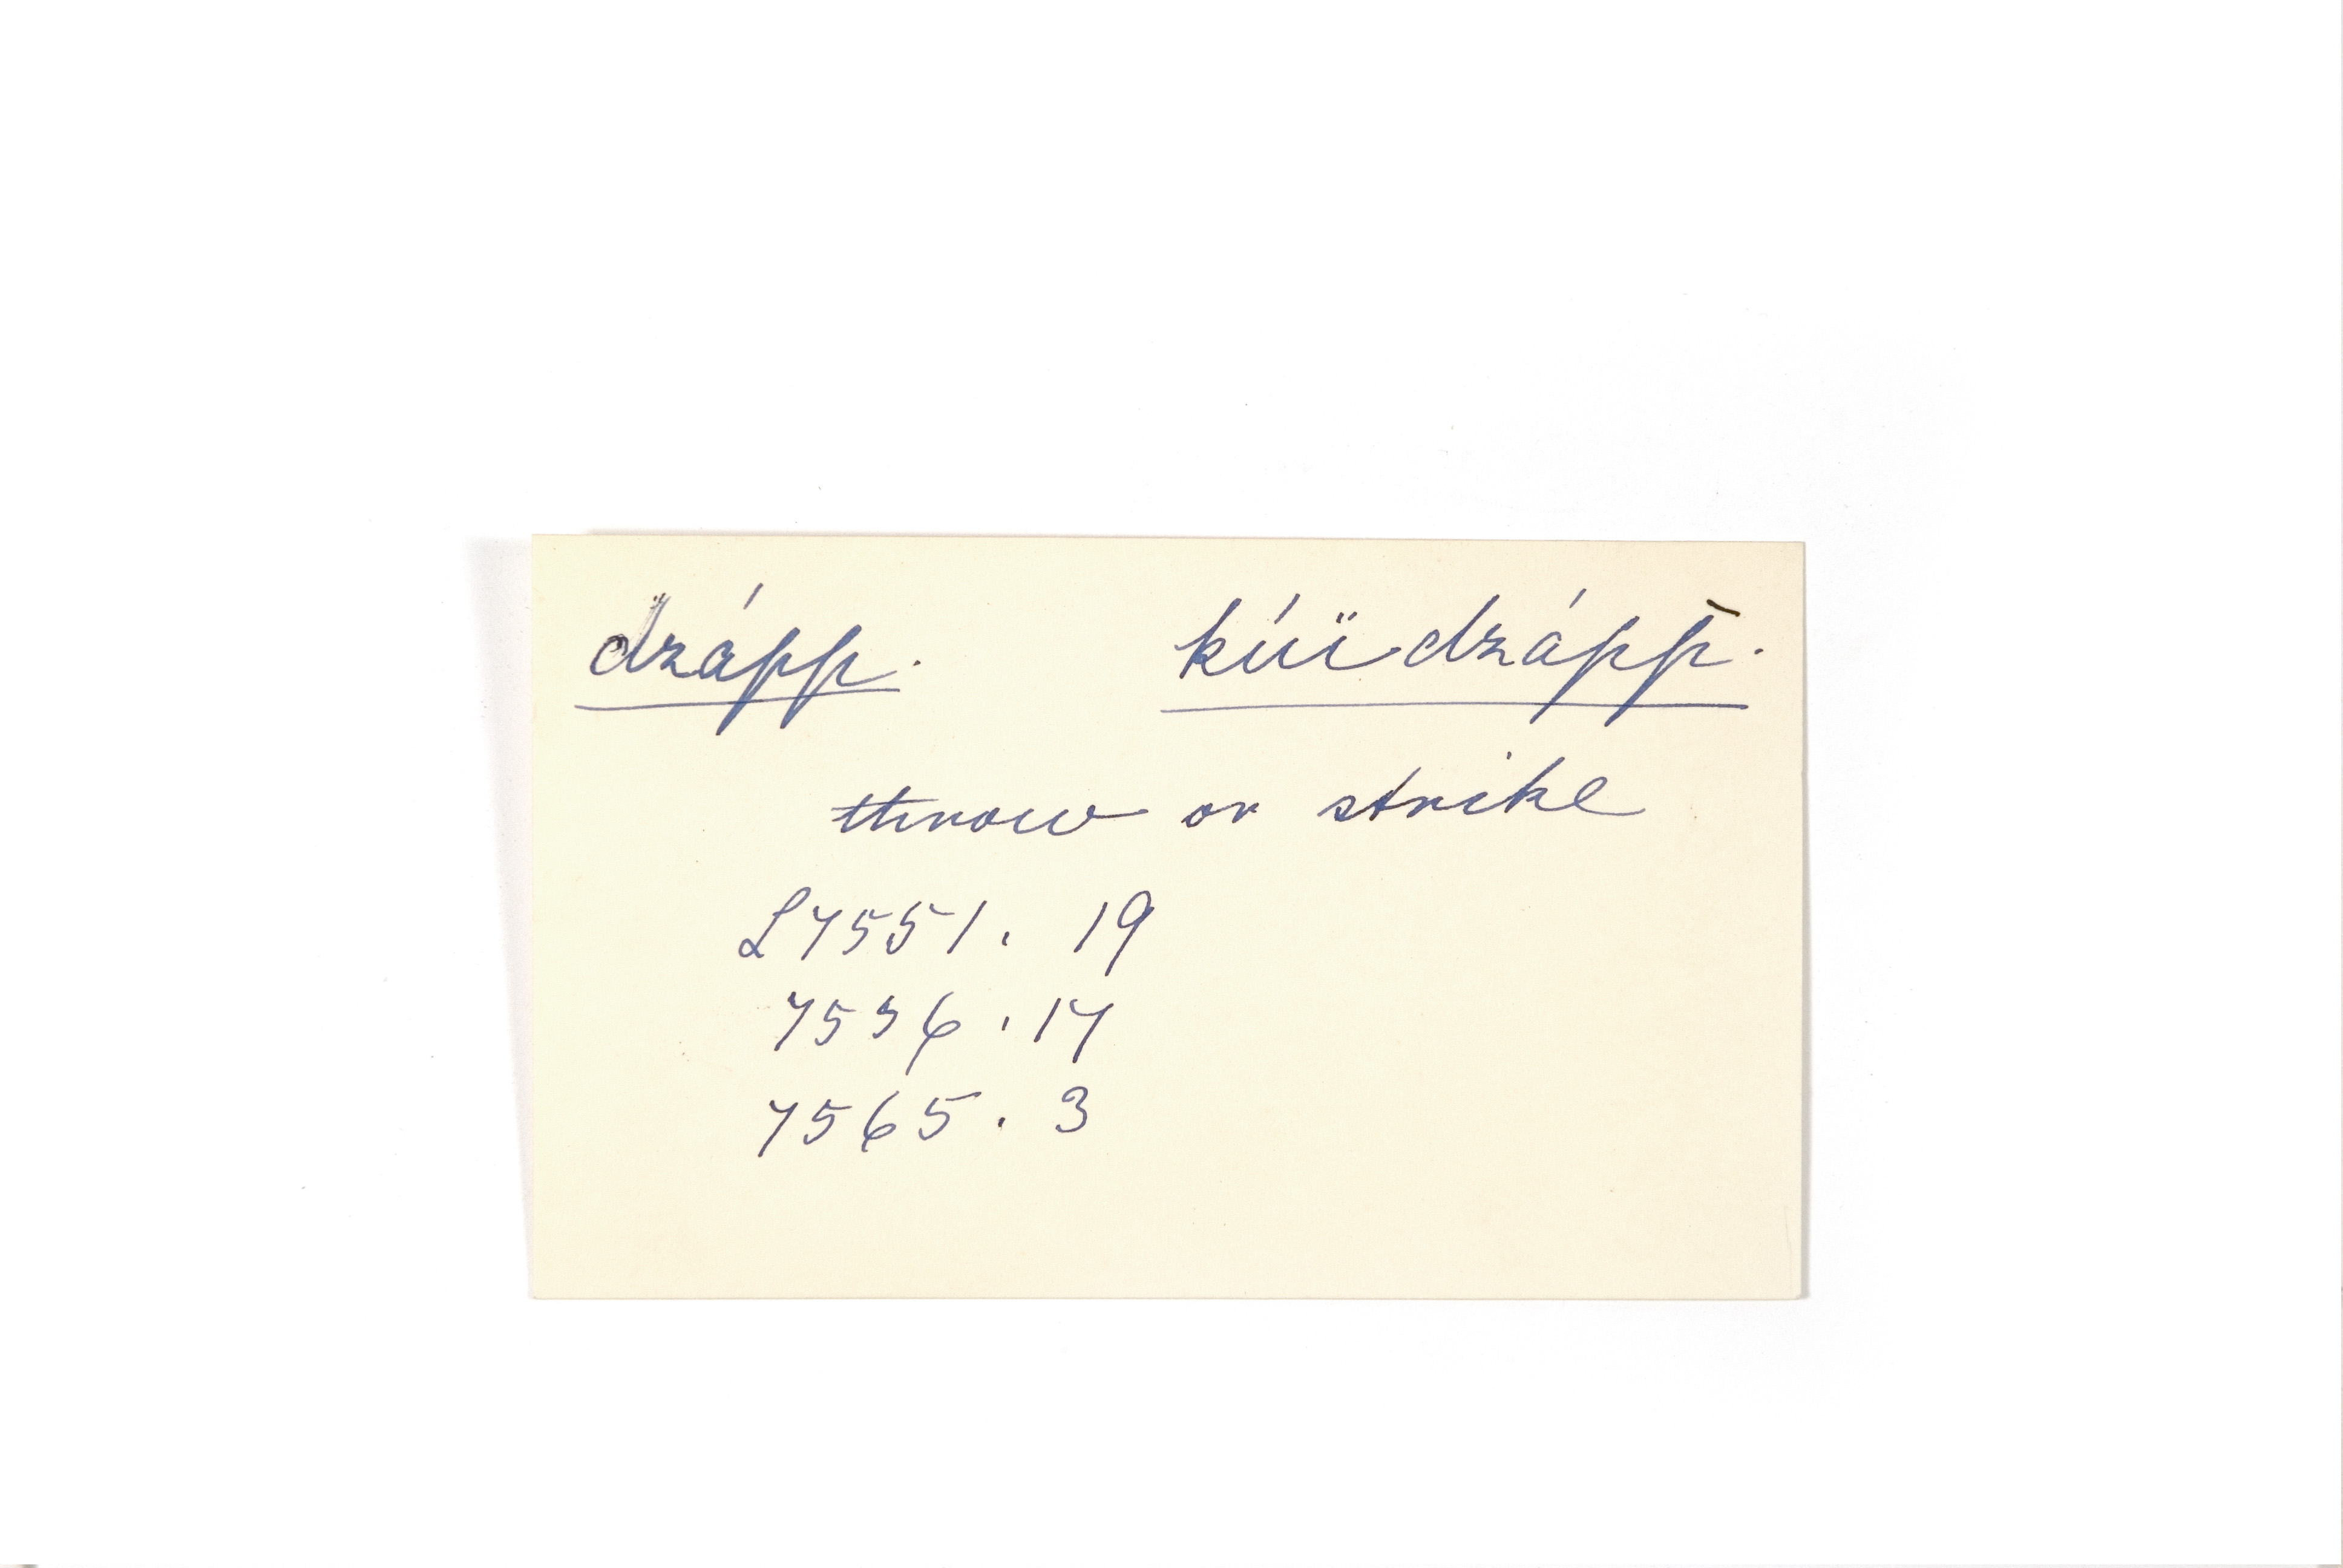 dzápp. kúïdzápp̄.
throw or strike
L7551. 19
7556. 17
7565. 3